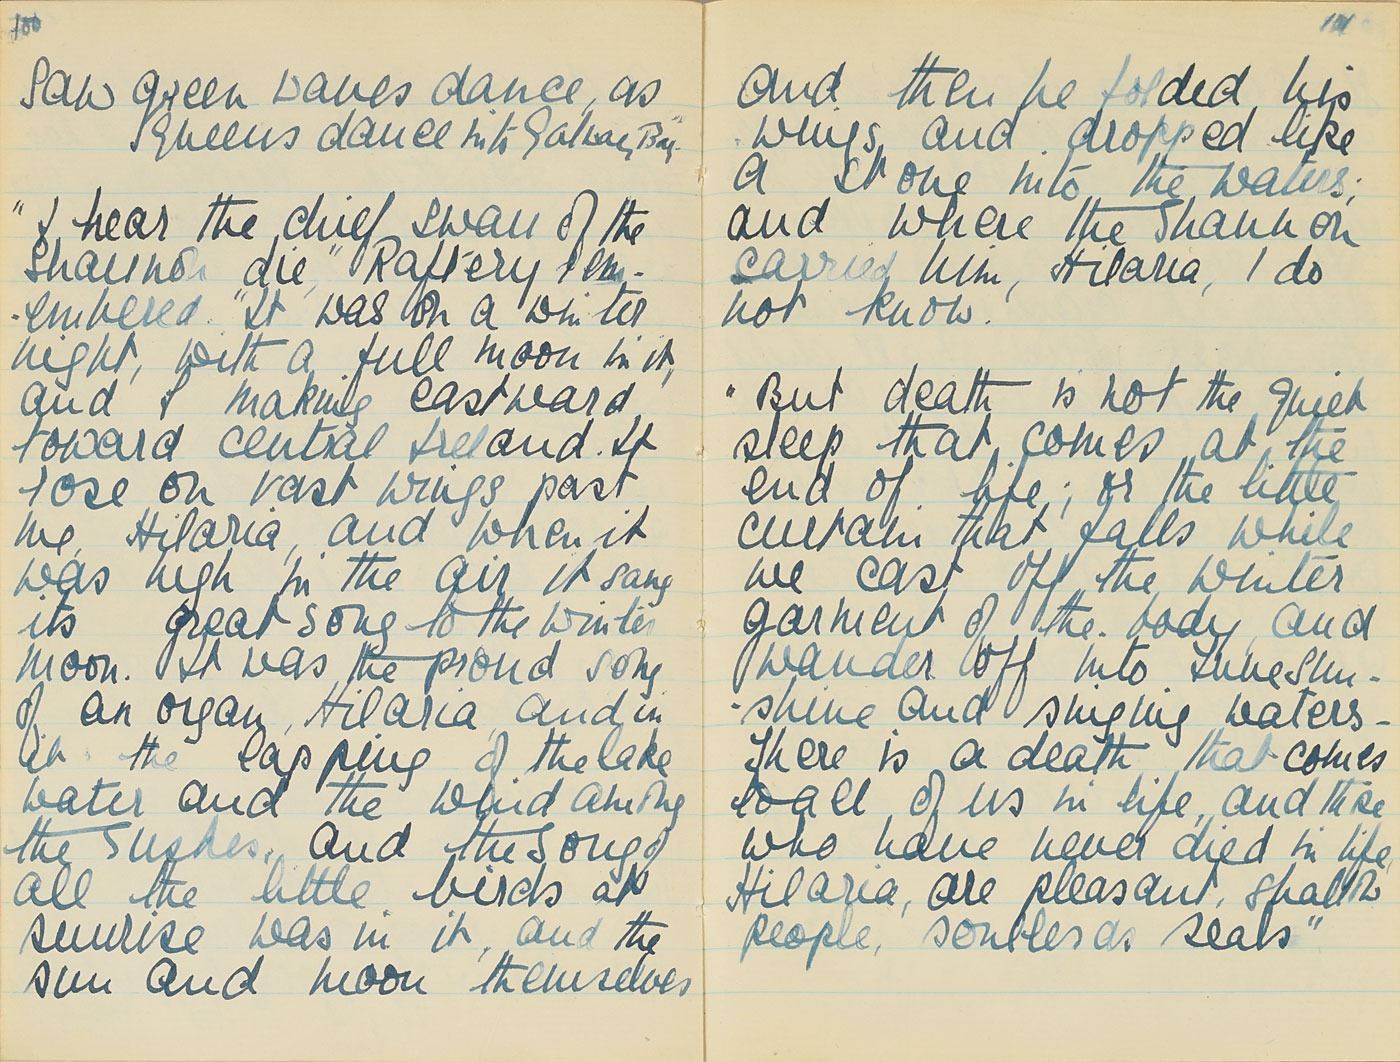 100
Saw green waves dance, as
Queens dance into Galway Bay."
"I hear the chief swan of the
Shannon die," Raftery rem-
-embered. "It was on a winter
night, with a full moon in it,
and I making eastward
toward central Ireland. It
rose on vast wings past
me, Hilaria, and when it
was high in the air it sang
its great song to the winter
moon. It was the proud song
of an organ, Hilaria, and in
it the lapping of the lake
water and the wind among
the rushes, and the song of
all the little birds at
sunrise was in it, and the
sun and moon themselves
101
and then he folded his
wings, and dropped like
a stone into the waters;
and where the Shannon
carried him, Hilaria, I do
not know.
"But death is not the quiet
sleep that comes at the
end of life; or the little
curtain that falls while
we cast off the winter
garment of the body, and
wander off into June Sun-
-shine and singing waters -
There is a death that comes
to all of us in life, and those
who have never died in life,
Hilaria, are pleasant, shallow
people, soulless as seals"